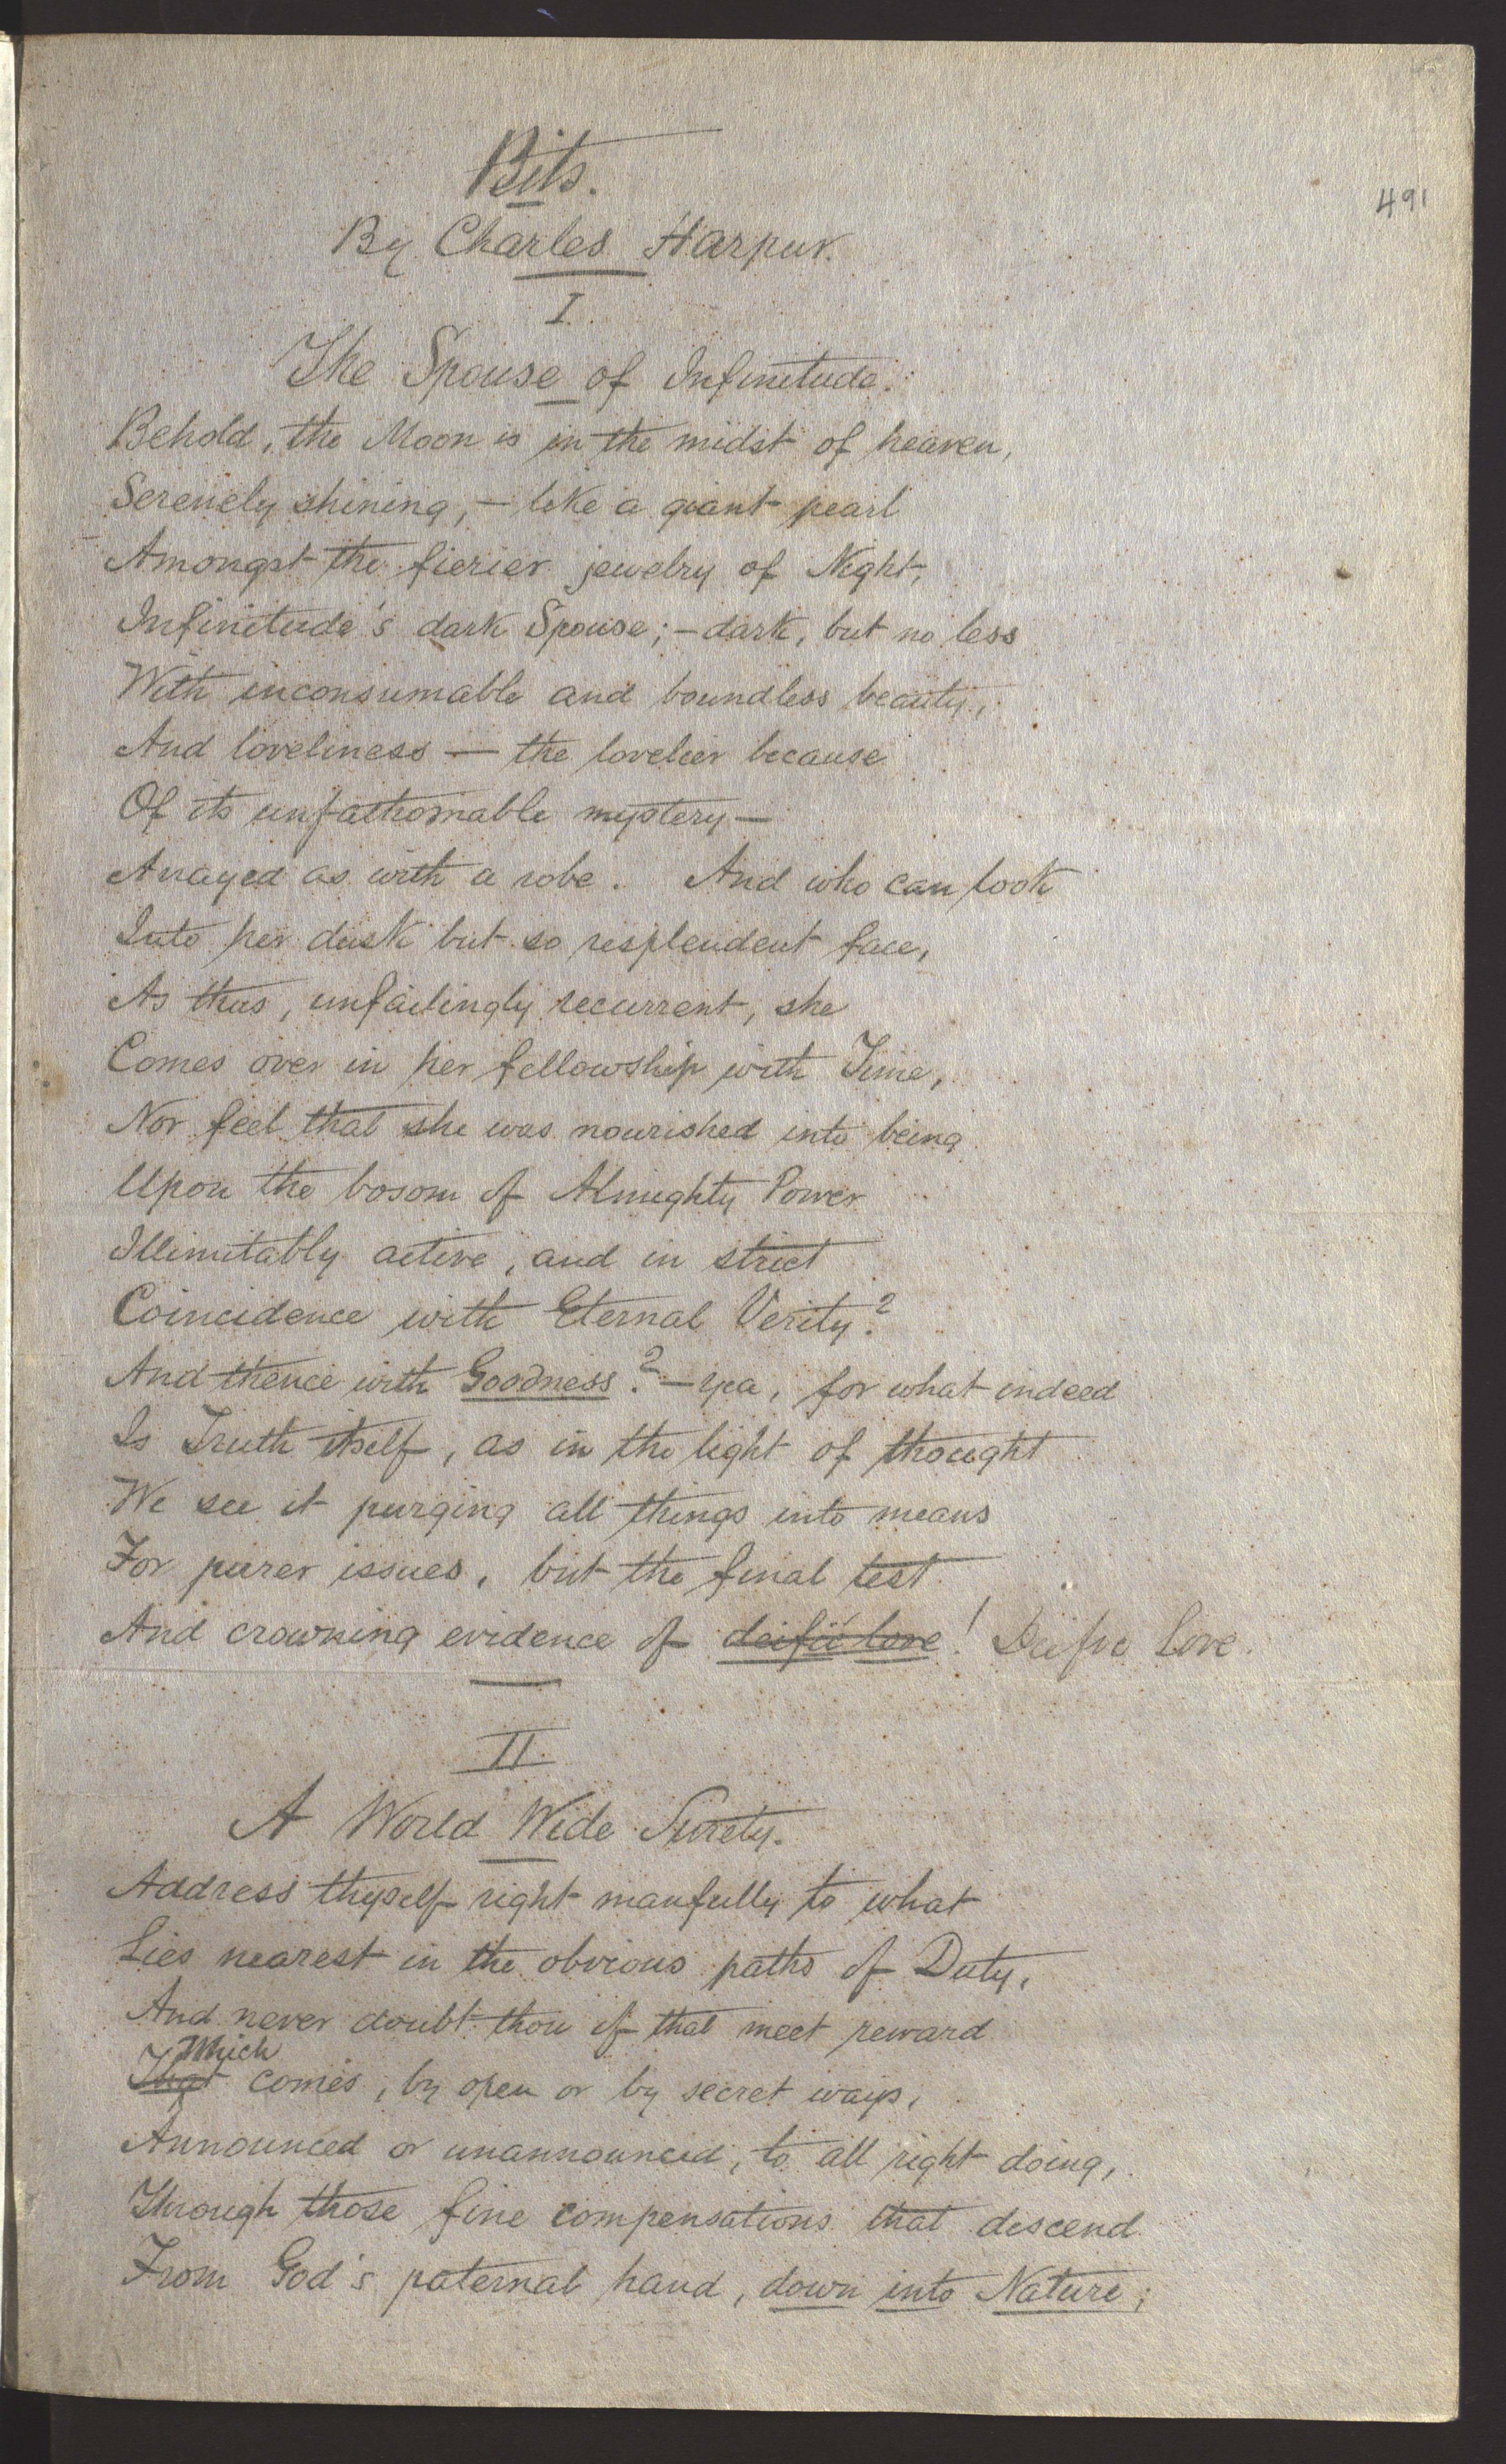 491
Bits.
By Charles Harpur.
I.
The Spouse of Infinitude.
Behold, the Moon is in the midst of heaven,
Serenely shining, — like a giant pearl
Amongst the fierier jewelry of Night,
Infinitude's dark Spouse; — dark, but no less
With inconsumable and boundless beauty,
And loveliness — the lovelier because
Of its unfathomable mystery —
Arrayed as with a robe. And who can look
Into her dusk but so resplendent face,
As thus, unfailingly recurrent, she
Comes over in her fellowship with Time,
Nor feel that she was nourished into being
Upon the bosom of Almighty Power
Illimitably active, and in strict
Coincidence with Eternal Verity?
And thence with Goodness? — yea, for what indeed
Is Truth itself, as in the light of thought
We see it purging all things into means
For purer issues, but the final test
And crowning evidence of deific love! Deific Love.
II.
A World Wide Surety.
Address thyself right manfully to what
Lies nearest in the obvious paths of Duty,
And never doubt thou of that meet reward
Which
That comes, by open or by secret ways,
Announced or unannounced, to all right doing,
Through those fine compensations that descend
From God's paternal hand, down into Nature;